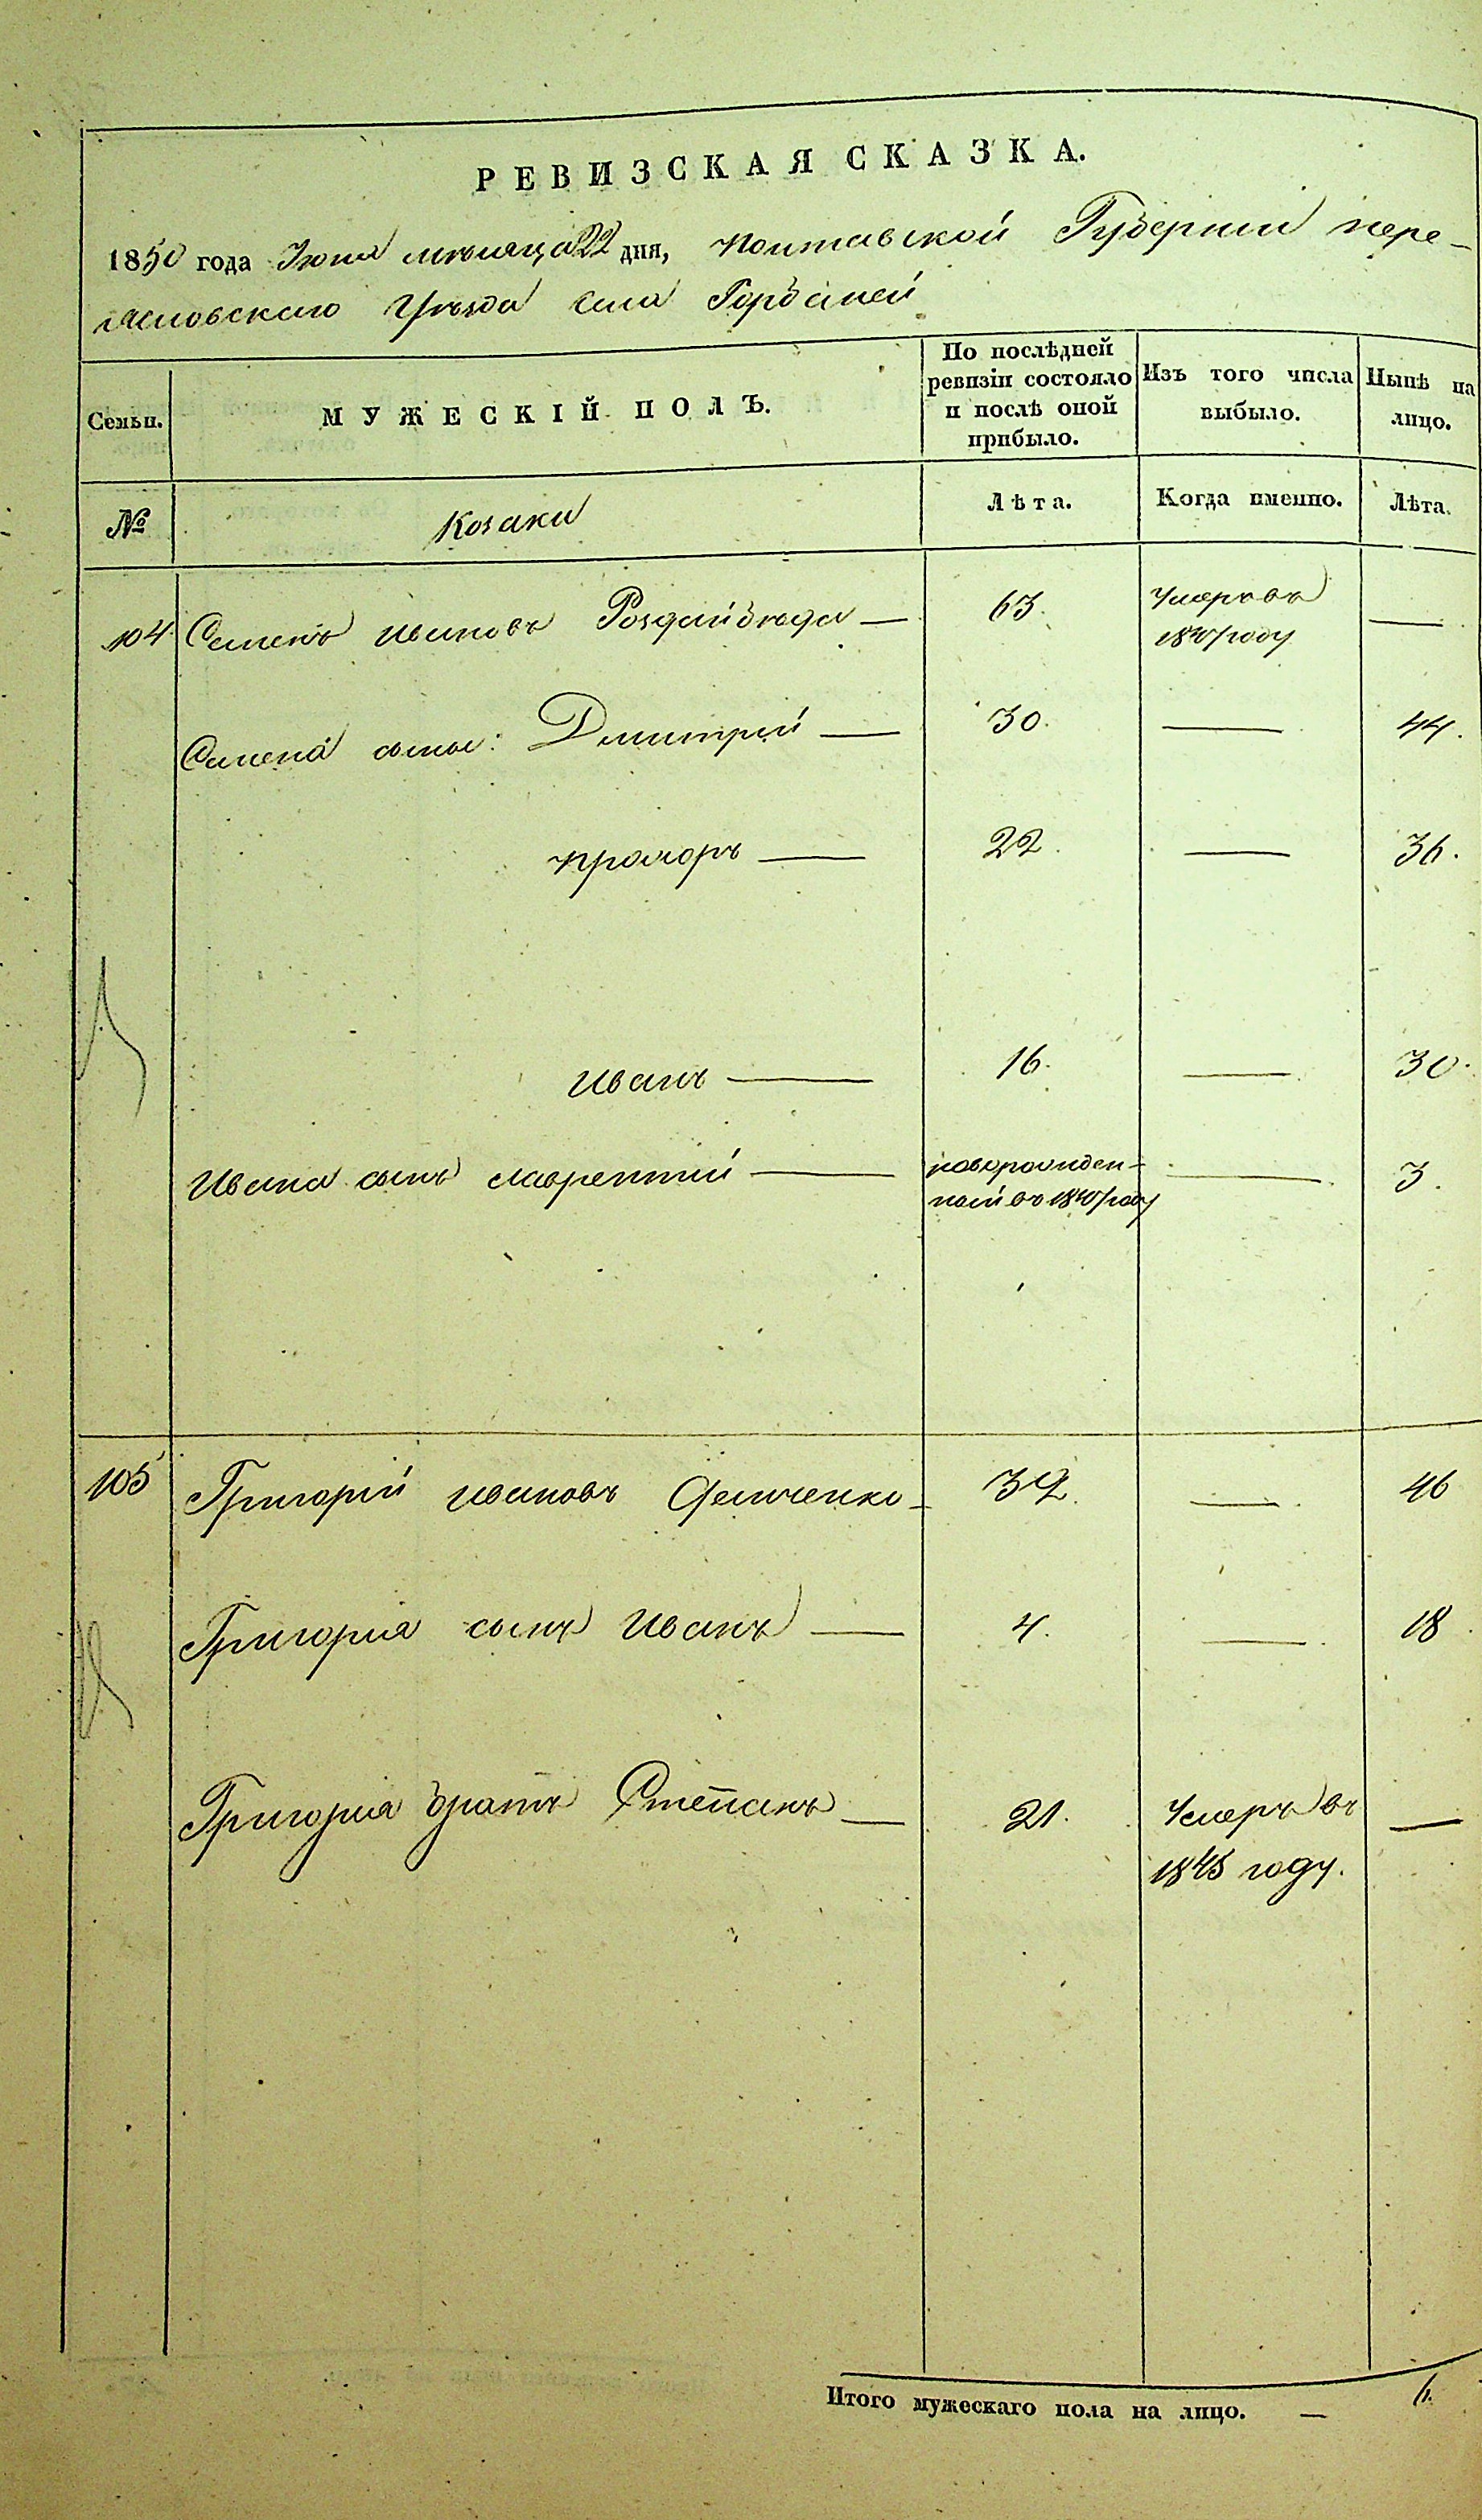 РЕВИЗСКАЯ СКАЗКА.
1850 года Июня мѣсяца 22 дня, Полтавской Губерніи пере-
яславскаго Уѣзда села Горбаней
Семьи.
МУЖЕСКІЙ ПОЛЪ.
По послѣдней
ревизіи состояло
и послѣ оной
прибыло.
Изъ того числа
выбыло.
Нынѣ на
лицо.
№
Козаки
Лѣта.
Когда именно.
Лѣта.
104 Семенъ Ивановъ Роздайбѣда — 63. Умеръ въ —
1847 году
Семена сыны: Дмитрій — 30. — 44.
Прохоръ — 22. — 36.
Иванъ — 16. — 30.
Ивана сынъ Лаврентій — новорожден- — 3.
ный въ 1847 году
105 Григорій Ивановъ Демченко — 32. — 46
Григорія сынъ Иванъ — 4. — 18
Григорія братъ Степанъ — 21. Умеръ въ —
1845 году.
Итого мужескаго пола на лицо. — 6.